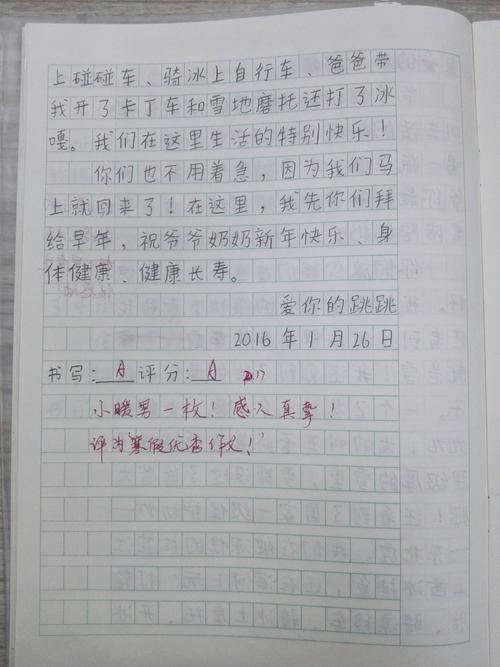 上碰碰车、骑冰上自行车、爸爸带
我开了卡丁车和雪地摩托还打了冰
嘎。我们在这里生活的特别快乐！
你们也不用着急，因为我们马
上就回来了！在这里，我先你们拜
给早年，祝爷爷奶奶新年快乐、身
体健康、健康长寿。
爱你的跳跳
2016年1月26日
书写：A 评分：A 2.17
小暖男一枚！感人真挚！
评为寒假优秀作文！